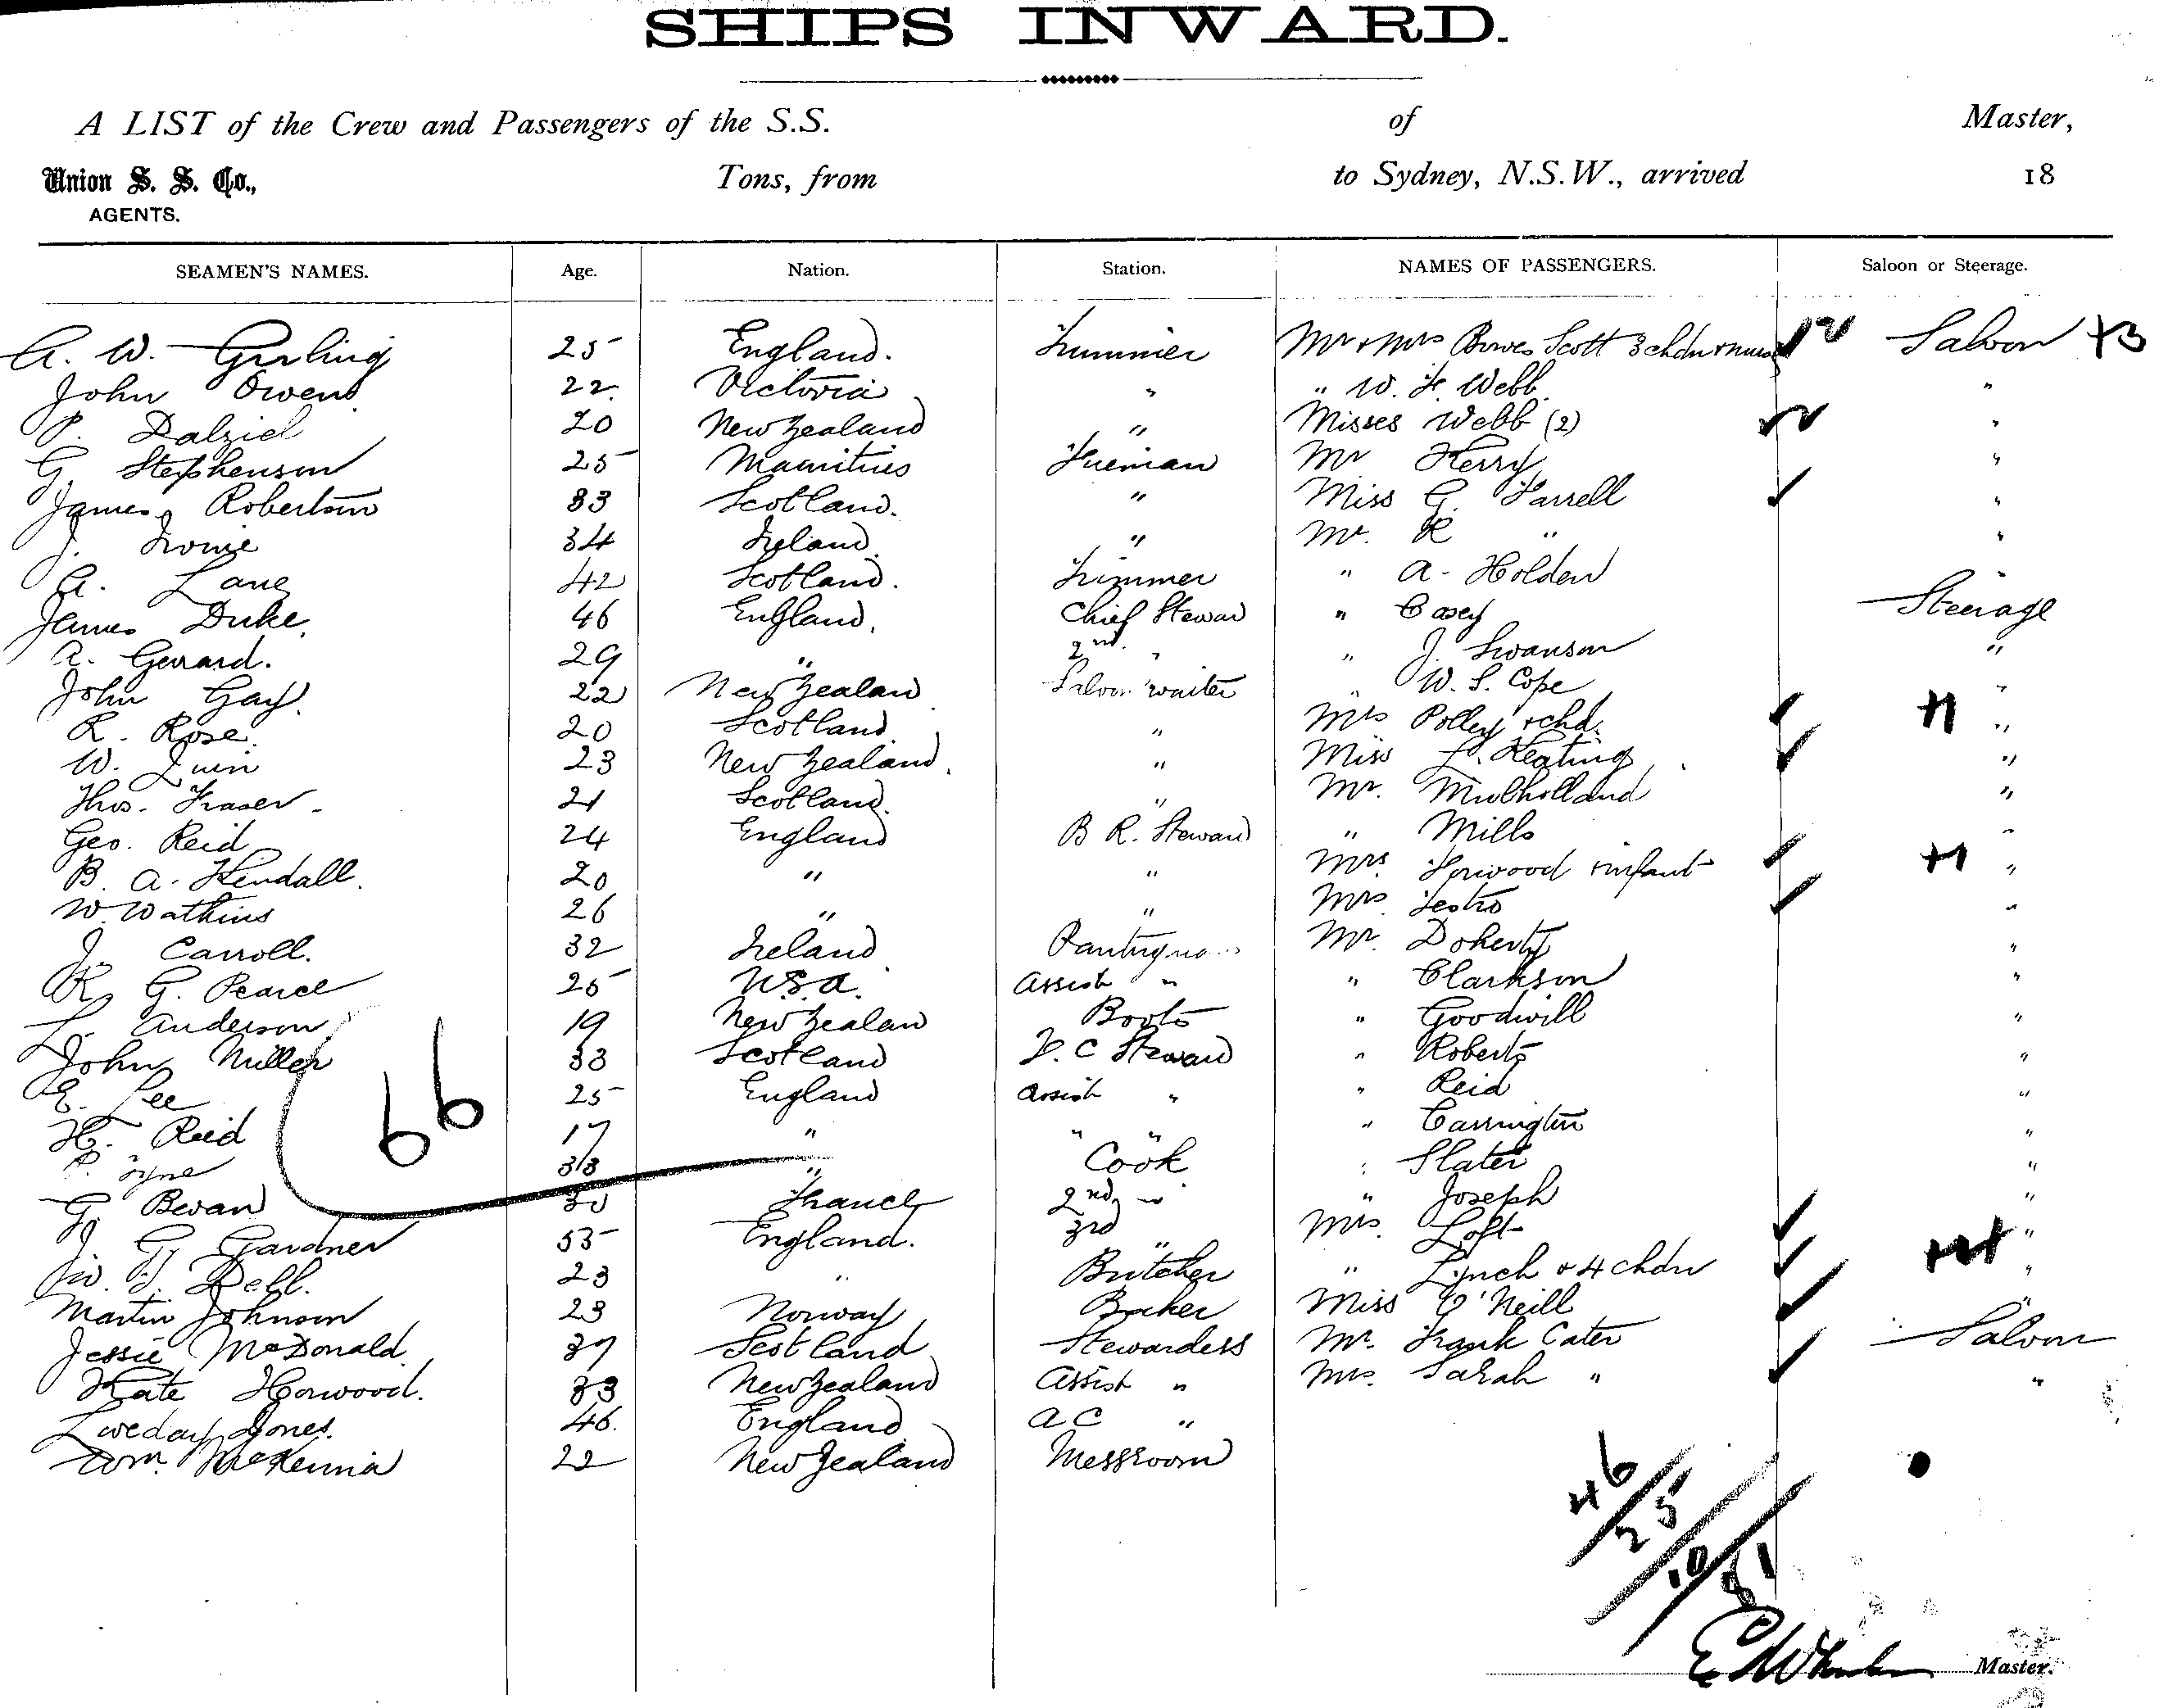 SHIPS INWARD.
A LIST of the Crew and Passengers of the S.S. of Master,
Union S. S. Co., Tons, from to Sydney, N.S.W., arrived 18
AGENTS.
SEAMEN'S NAMES. Age. Nation. Station. NAMES OF PASSENGERS. Saloon or Steerage.
A. W. Gurling 25 England. Trimmer Mr & Mrs Bowes Scott 3 chdn & nurse Saloon +3
John Owens 22. Victoria " " W. F. Webb. "
P. Dalziel 20 New Zealand " Misses Webb (2) "
G. Stephenson 25 Mauritius Fireman Mr Herry "
James Robertson 33 Scotland. " Miss G. Farrell "
J. 34 Ireland. " Mr. R " "
A. Lang 42 Scotland. Trimmer " A. Holden "
James Duke. 46 England. Chief Steward " Casey Steerage
Gerrard. 29 " 2nd. " " J. Swanson "
John Gay. 22 New Zealand Saloon waiter " W. S. Cope "
R. Rose. 20 Scotland. " Mrs Polley & chd. +1 "
W. Quin 23 New Zealand. " Miss Keating "
Thos. Fraser 21 Scotland. " Mr. Mulholland "
Geo. Reid 24 England B R. Steward " Mills "
B. A. Kendall. 20 " " Mrs. Horwood & infant +1 "
W. Watkins 26 " " Mrs Testro "
J. Carroll. 32 Ireland Pantryman Mr. Doherty "
R. G. Pearce 25 U.S.A. Assist " " Clarkson "
L. Anderson 19 New Zealand Boots " Goodwill "
John Miller 33 Scotland F. C Steward " Roberts "
E. Lee 25 England Assist " " Reid "
H. Reid 17 " " " " Carrington "
66
Tyne 33 " Cook " Slater "
G. Bevan 30 France 2nd " " Joseph "
J. G. Gardner 53 England. 3rd " Mrs. Loft "
W. J. Dell. 23 " Butcher " Lynch & 4 chdn "
Martin Johnson 23 Norway Baker Miss O'Neill "
Jessie McDonald. 37 Scotland Stewardess Mr. Frank Cater Saloon
Kate Horwood. 33 New Zealand Assist " Mrs. Sarah " "
Loveday Jones. 46. England A C "
Wm. McKenna 22 New Zealand Messroom
46/25/10/81
Master.